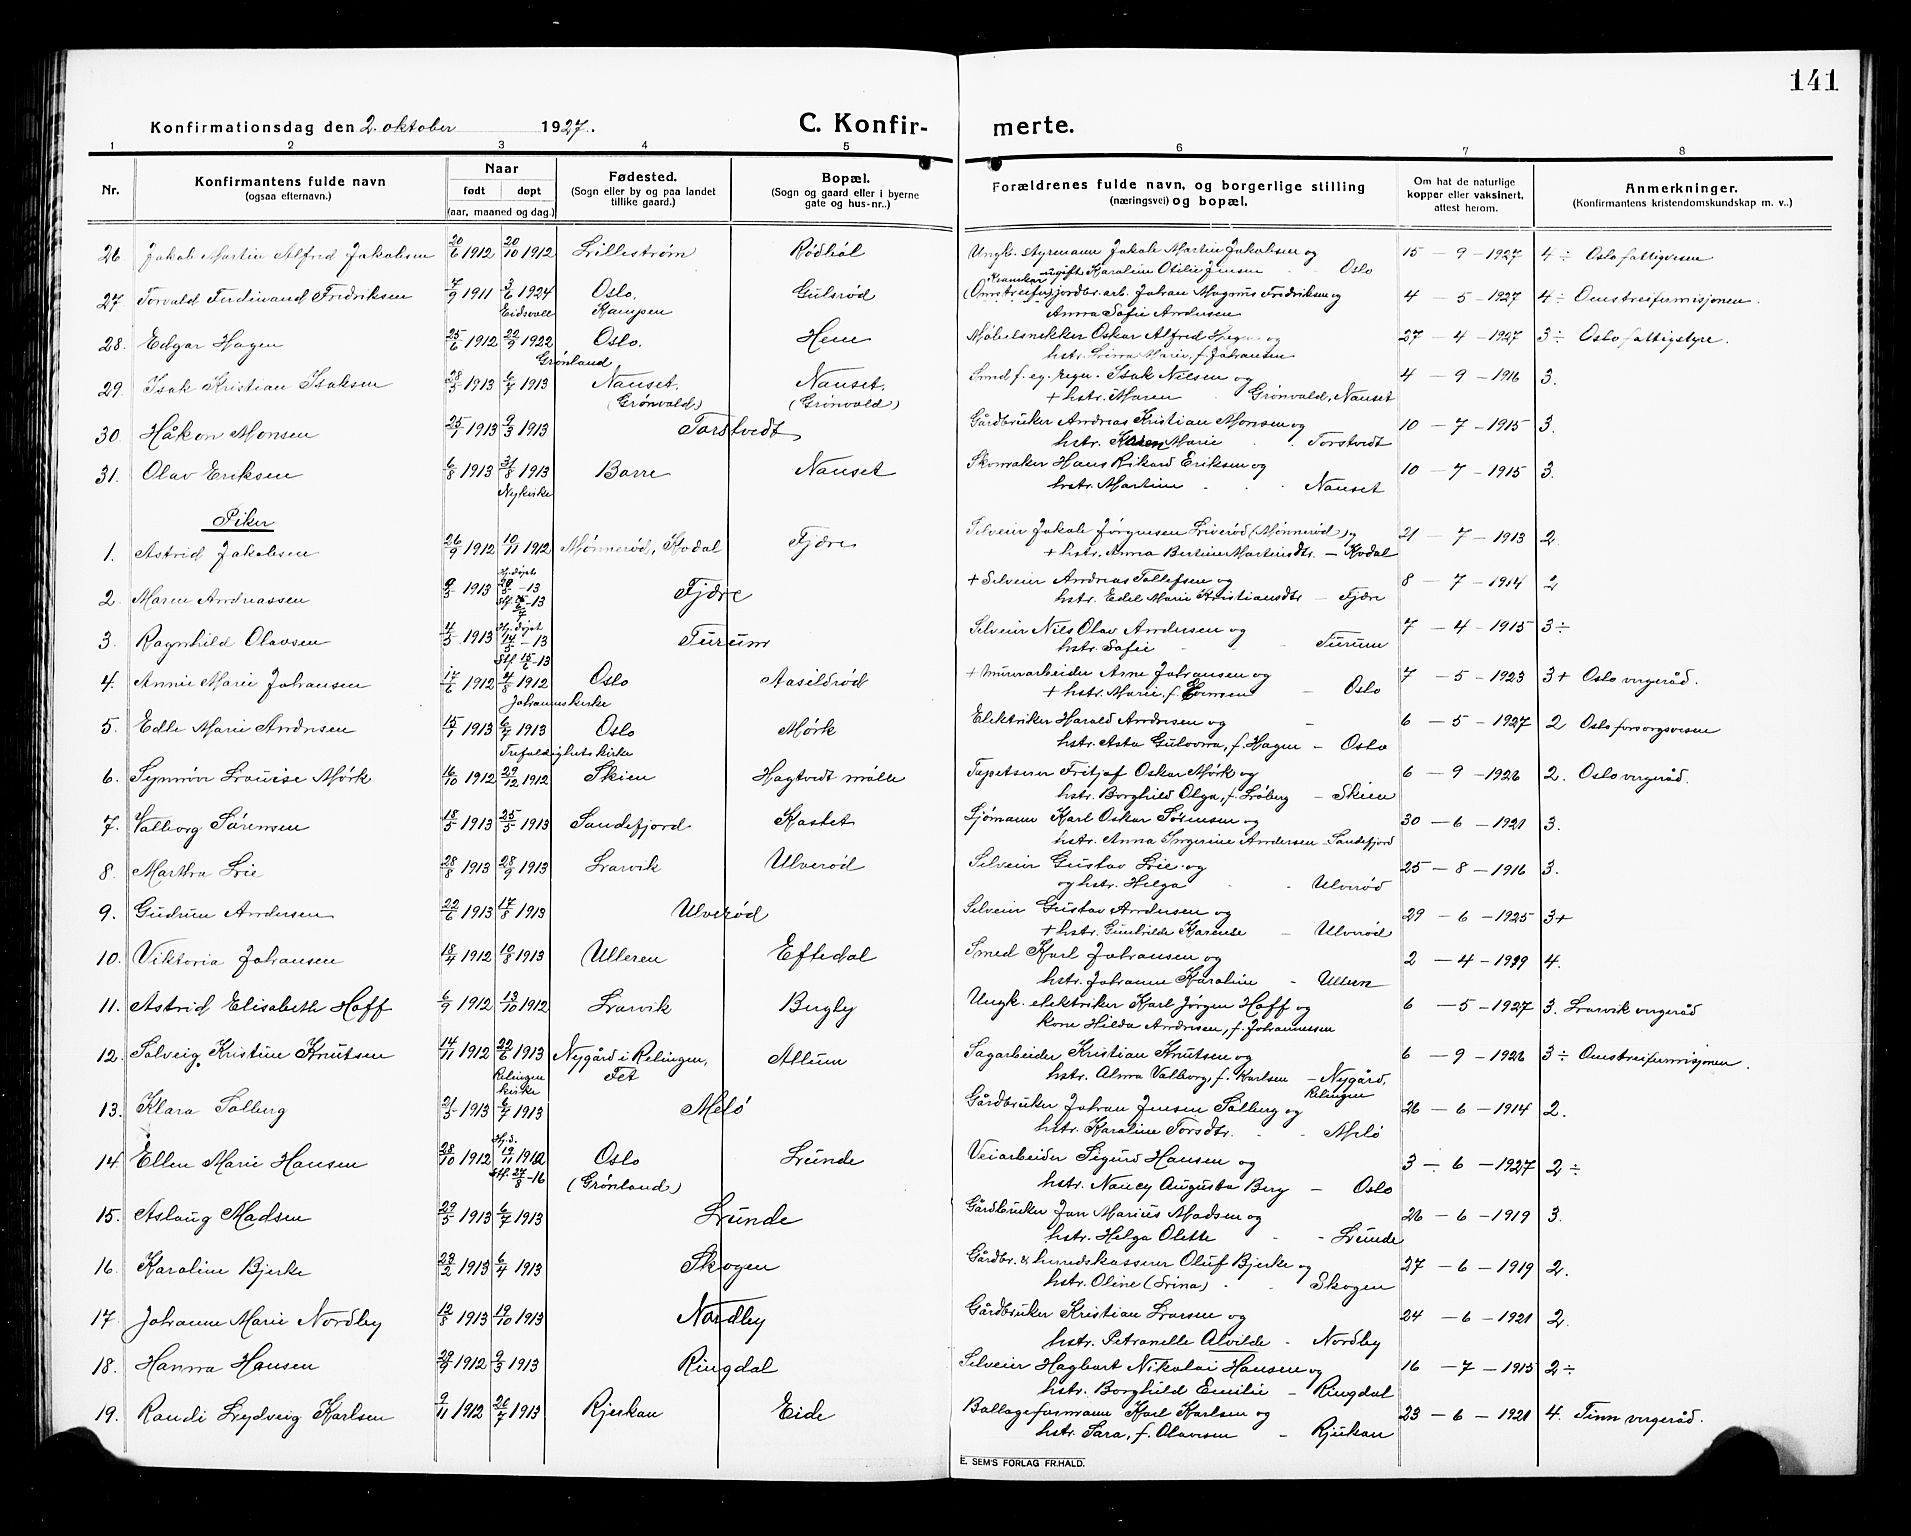 141
Konfirmationsdag den 2. oktober 1927. C. Konfir- merte.
1 2 3 4 5 6 7 8
Nr. Konfirmantens fulde navn (ogsaa efternavn.) Naar født døpt (aar, maaned og dag.) Fødested. (Sogn eller by og paa landet tillike gaard.) Bopæl. (Sogn og gaard eller i byerne gate og hus-nr..) Forældrenes fulde navn, og borgerlige stilling (næringsvei) og bopæl. Om hat de naturlige kopper eller vaksinert, attest herom. Anmerkninger. (Konfirmantens kristendomskundskap m. v..)
26 Jakob Martin Alfred Jakobsen 20/6 1912 20/10 1912 Lillestrøm Rødbøl Ungk. styrmann Jakob Martin Jakobsen og 15 - 9 - 1927 4 ÷ Oslo fattigvesen
ugift Karoline Otilie Jensen Oslo
27 Torvald Ferdinand Fredriksen 7/9 1911 3/6 1924 Oslo, Gulsrød (Omstreifer) jordbr. arb. Johan Magnus Fredriksen og 4 - 5 - 1927 4 ÷ Omstreifermisjonen.
Eidsvoll Kampen Anna Sofie Andersen
28. Edgar Hagen 25/6 1912 22/9 1922 Oslo. Hem Møbelsnekker Oskar Alfred Hagen og 27 - 4 - 1927 3 ÷ Oslo fattigstyre.
Grønland hstr. Linna Marie, f. Johansen
29. Isak Kristian Isaksen 28/5 1913 6/7 1913 Nanset. Nanset. Smed f. eg. regn. Isak Nilsen og 4 - 9 - 1916 3.
(Grønvald) (Grønvald) + hstr. Maren Grønvald, Nanset
30. Håkon Monsen 25/1 1913 9/3 1913 Torstvedt Gårdbruker Andreas Kristian Monsen og 10 - 7 - 1915 3.
hstr. Karen Marie Torstvedt
31. Olav Eriksen 6/8 1913 31/8 1913 Borre Nanset Skomaker Hans Rikard Eriksen og 10 - 7 - 1915 3.
Nykirke hstr. Martine Nanset
Piker
1. Astrid Jakobsen 26/9 1912 10/11 1912 Mønnerød, Kodal Fjære Selveier Jakob Jørgensen Liverød (Mønnerød) og 21 - 7 - 1913 2.
+ hstr. Anna Bertine Martinsdtr. - Kodal
2. Maren Andreassen 9/3 1913 Hj.døpt -13 Fjære + Selveier Andreas Tollefsen og 8 - 7 - 1914 2
hstr. Edel Marie Kristiansdtr - Fjære
3. Ragnhild Olavsen 4/5 1913 Hj.døpt 14/5 - 13 Furum Selveier Nils Olav Andersen og 7 - 4 - 1915 3 ÷
Stf. 15/6 -13 hstr. Sofie Furum
4. Annie Marie Johansen 17/6 1912 4/8 1912 Oslo Aasildrød + Murerarbeider Arne Johansen og 7 - 5 - 1923 3+ Oslo vergeråd.
Johanneskirke + hstr. Marie, f. - Oslo
5. Edle Marie Andresen 15/1 1913 6/7 1913 Oslo Mørk Elektriker Harald Andresen og 6 - 5 - 1927 2 Oslo forsorgsvesen
Trefoldighetskirke hstr. Asta Gulovna, f. Hagen - Oslo
6. Synnøve Lovise Mørk 16/10 1912 29/12 1912 Skien Hagtvedt mølle Tapetserer Fritjof Oskar Mørk og 6 - 9 - 1926 2. Oslo vergeråd.
hstr. Borghild Olga, f. Løberg - Skien
7. Valborg Sørensen 18/5 1913 25/5 1913 Sandefjord Kastet Sjømann Karl Oskar Sørensen og 30 - 6 - 1921 3.
hstr. Anna Ingerine Andersen - Sandefjord
8. Martha Lie 28/8 1913 28/9 1913 Larvik Ulverød Selveier Gustav Lie og 25 - 8 - 1916 3.
og hstr. Helga - Ulverød
9. Gudrun Andersen 22/6 1913 17/8 1913 Ulverød Selveier Gustav Andersen og 29 - 6 - 1925 3+
+ hstr. Gunhilde Karense - Ulverød
10. Viktoria Johansen 18/4 1912 10/8 1913 Ulleren Eftedal Smed Karl Johansen og 2 - 4 - 1929 4.
hstr. Johanne Karoline - Ulleren
11. Astrid Elisabeth Hoff 6/9 1912 13/10 1912 Larvik Bergby Ungk. elektriker Karl Jørgen Hoff og 6 - 5 - 1927 3. Larvik vergeråd
kone Hilda Andresen, f. Johannessen
12. Solveig Kristine Knutsen 14/11 1912 22/6 1913 Nygård i Relingen, Allum Sagarbeider Kristian Knutsen og 6 - 9 - 1926 3 ÷ Omstreifermisjonen.
Relingen kirke Fet hstr. Alma Valborg, f. Karlsen - Nygård, Relingen
13. Klara Solberg 21/5 1913 6/7 1913 Melø Gårdbruker Johan Jensen Solberg og 26 - 6 - 1914 2.
hstr. Karoline Torsdtr. - Melø
14. Ellen Marie Hansen 28/10 1912 Hj.d. 19/11 1912 Oslo Lunde Veiarbeider Sigurd Hansen og 3 - 6 - 1927 2 ÷
Stf. 27/8 -16 (Grønland) hstr. Nancy Augusta Berg - Oslo
15. Aslaug Madsen 29/5 1913 6/7 1913 Lunde Gårdbruker Jan Marius Madsen og 26 - 6 - 1919 3.
hstr. Helga Olette - Lunde
16. Karoline Bjerke 23/2 1913 6/4 1913 Skogen Gårdbr. & herredskasserer Oluf Bjerke og 27 - 6 - 1919 2.
hstr. Oline (Lina) Skogen
17. Johanne Marie Nordby 12/8 1913 19/10 1913 Nordby Gårdbruker Kristian Larsen og 24 - 6 - 1921 2.
hstr. Petranelle Alvilde - Nordby
18. Hanna Hansen 29/9 1912 9/3 1913 Ringdal Selveier Hagbart Nikolai Hansen og 16 - 7 - 1915 2 ÷
hstr. Borghild Emilie - Ringdal
19. Randi Lydveig Karlsen 9/11 1912 26/7 1913 Rjukan Eide Karl Karlsen og 23 - 6 - 1921 4. Tinn vergeråd.
hstr. Sara, f. Olavesen - Rjukan
E. SEM'S FORLAG FR.HALD.